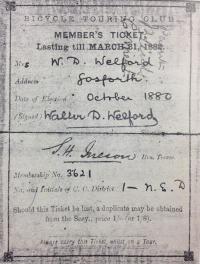 BICYCLE TOURING CLUB.
MEMBER'S TICKET
Lasting till MARCH 31, 1882.
Mr. W. D. Welford
Address Gosforth
Date of Election October 1880
(Signed) Walter D. Welford
Hon. Treas.
Membership No. 3621
No. and Initials of C. C. District 1 — N. S. D
Should this Ticket be lost, a duplicate may be obtained
from the Secy., price 1/- (or 1/8).
Always carry this Ticket, whilst on a Tour.